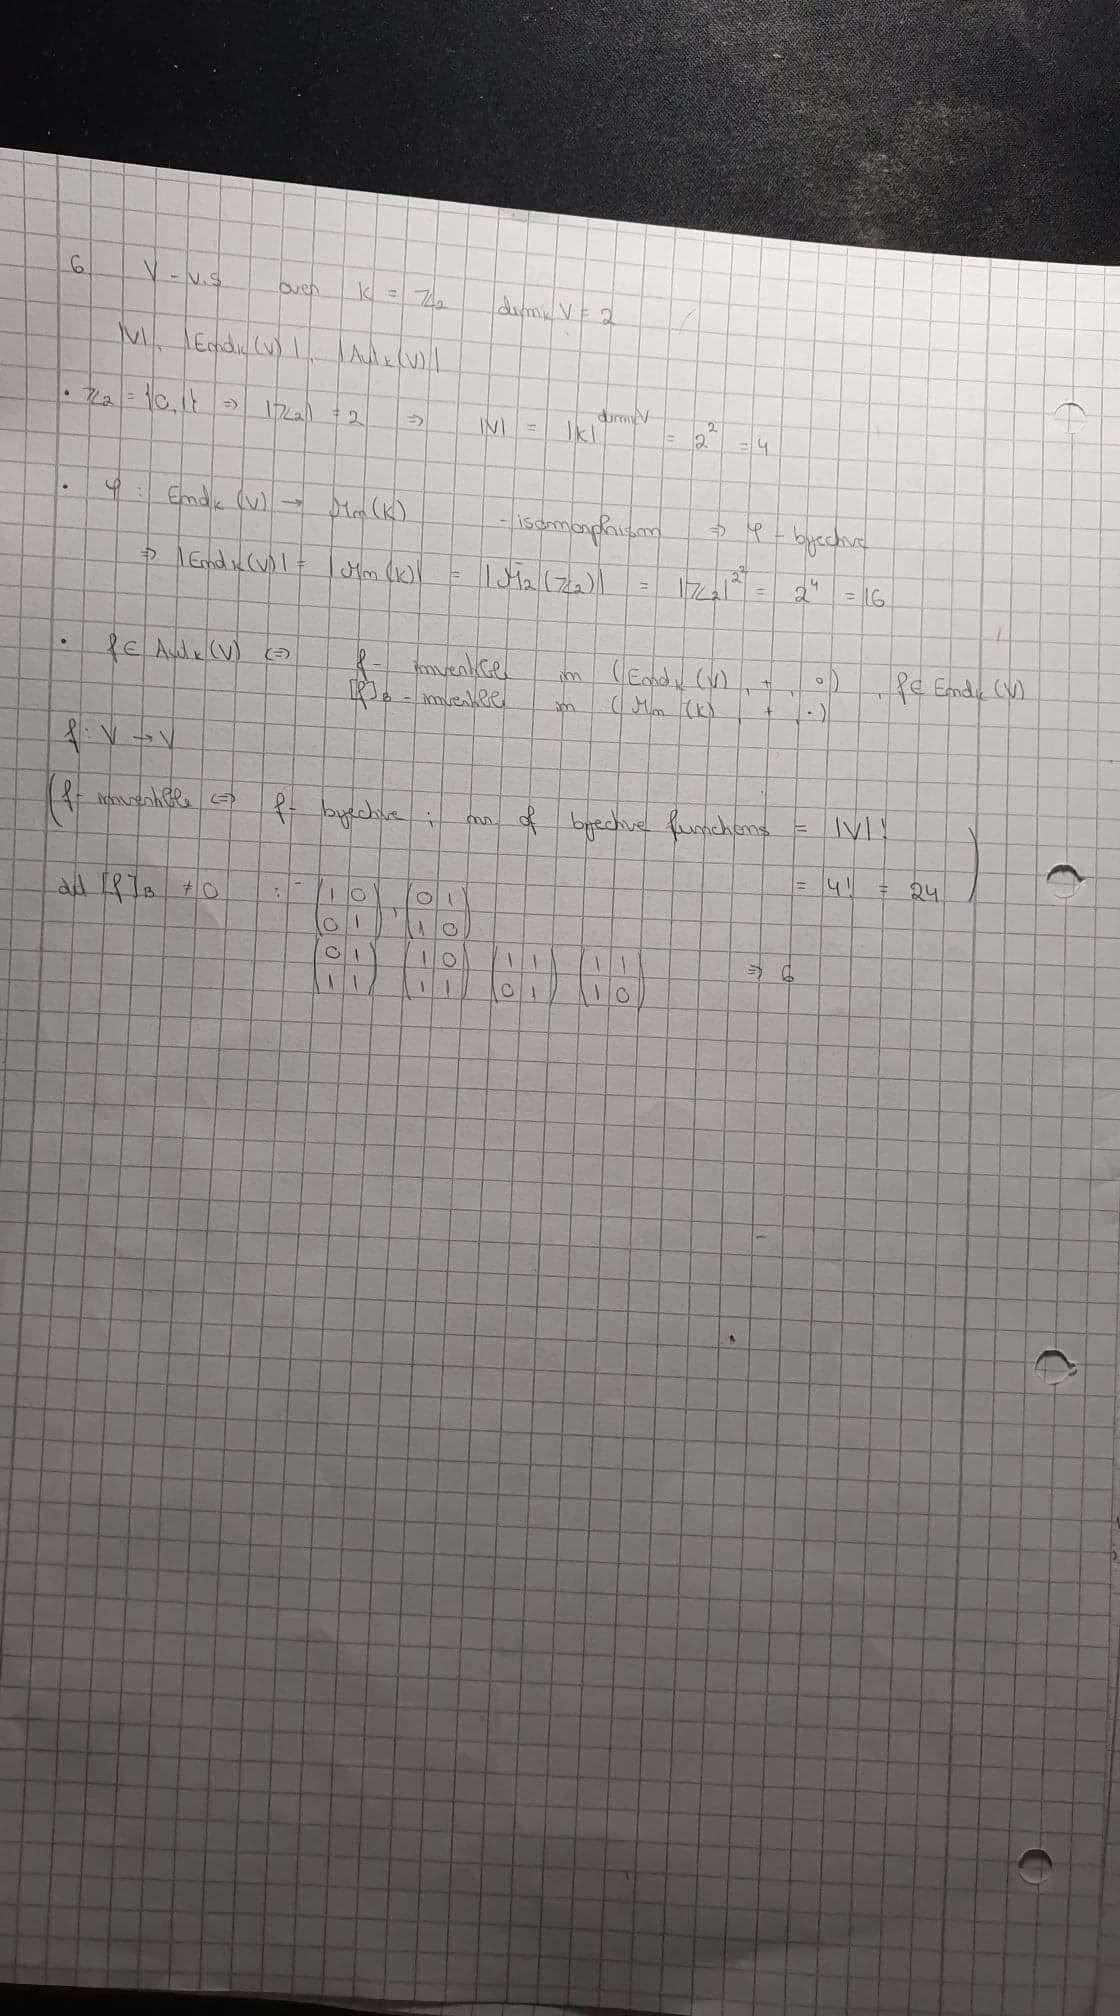 6. V - v.s over K = ℤ₂ dimₖ V = 2
|V|, |Endₖ(V)|, |Autₖ(V)|
• ℤ₂ = {0,1} ⇒ |ℤ₂| = 2 ⇒ |V| = |K|^dimₖV = 2² = 4
• φ : Endₖ(V) → Mₙ(K) - isomorphism ⇒ φ - bijective
⇒ |Endₖ(V)| = |Mₙ(K)| = |M₂(ℤ₂)| = |ℤ₂|^2² = 2⁴ = 16
• f ∈ Autₖ(V) ⇔ f - invertible in (Endₖ(V), +, ∘), f ∈ Endₖ(V)
[f]_B - invertible in (Mₙ(K), +, ·)
f : V → V
(f - invertible ⇔ f - bijective ; nr. of bijective functions = |V|!
= 4! = 24)
det [f]_B ≠ 0 : (1 0 / 0 1), (0 1 / 1 0)
(0 1 / 1 1) (1 0 / 1 1) (1 1 / 0 1) (1 1 / 1 0) ⇒ 6